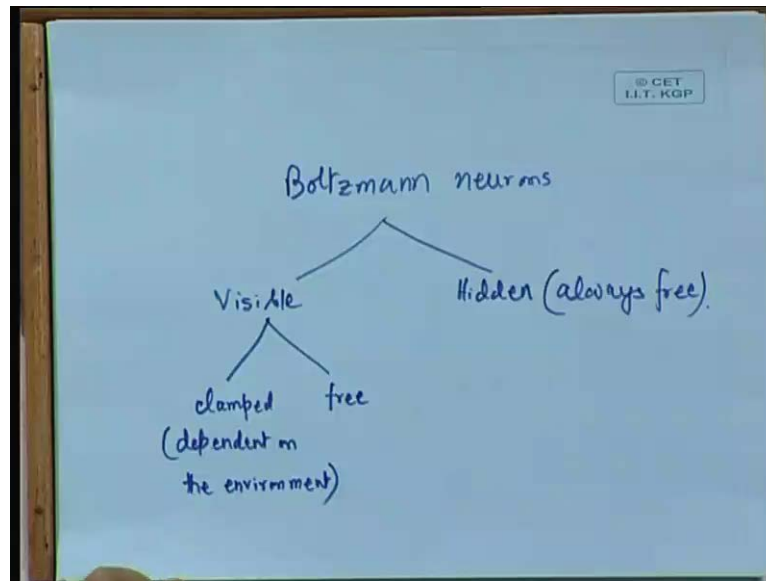 © CET
I.I.T. KGP
Boltzmann neurons
Visible
Hidden (always free).
clamped free
(dependent on
the environment)